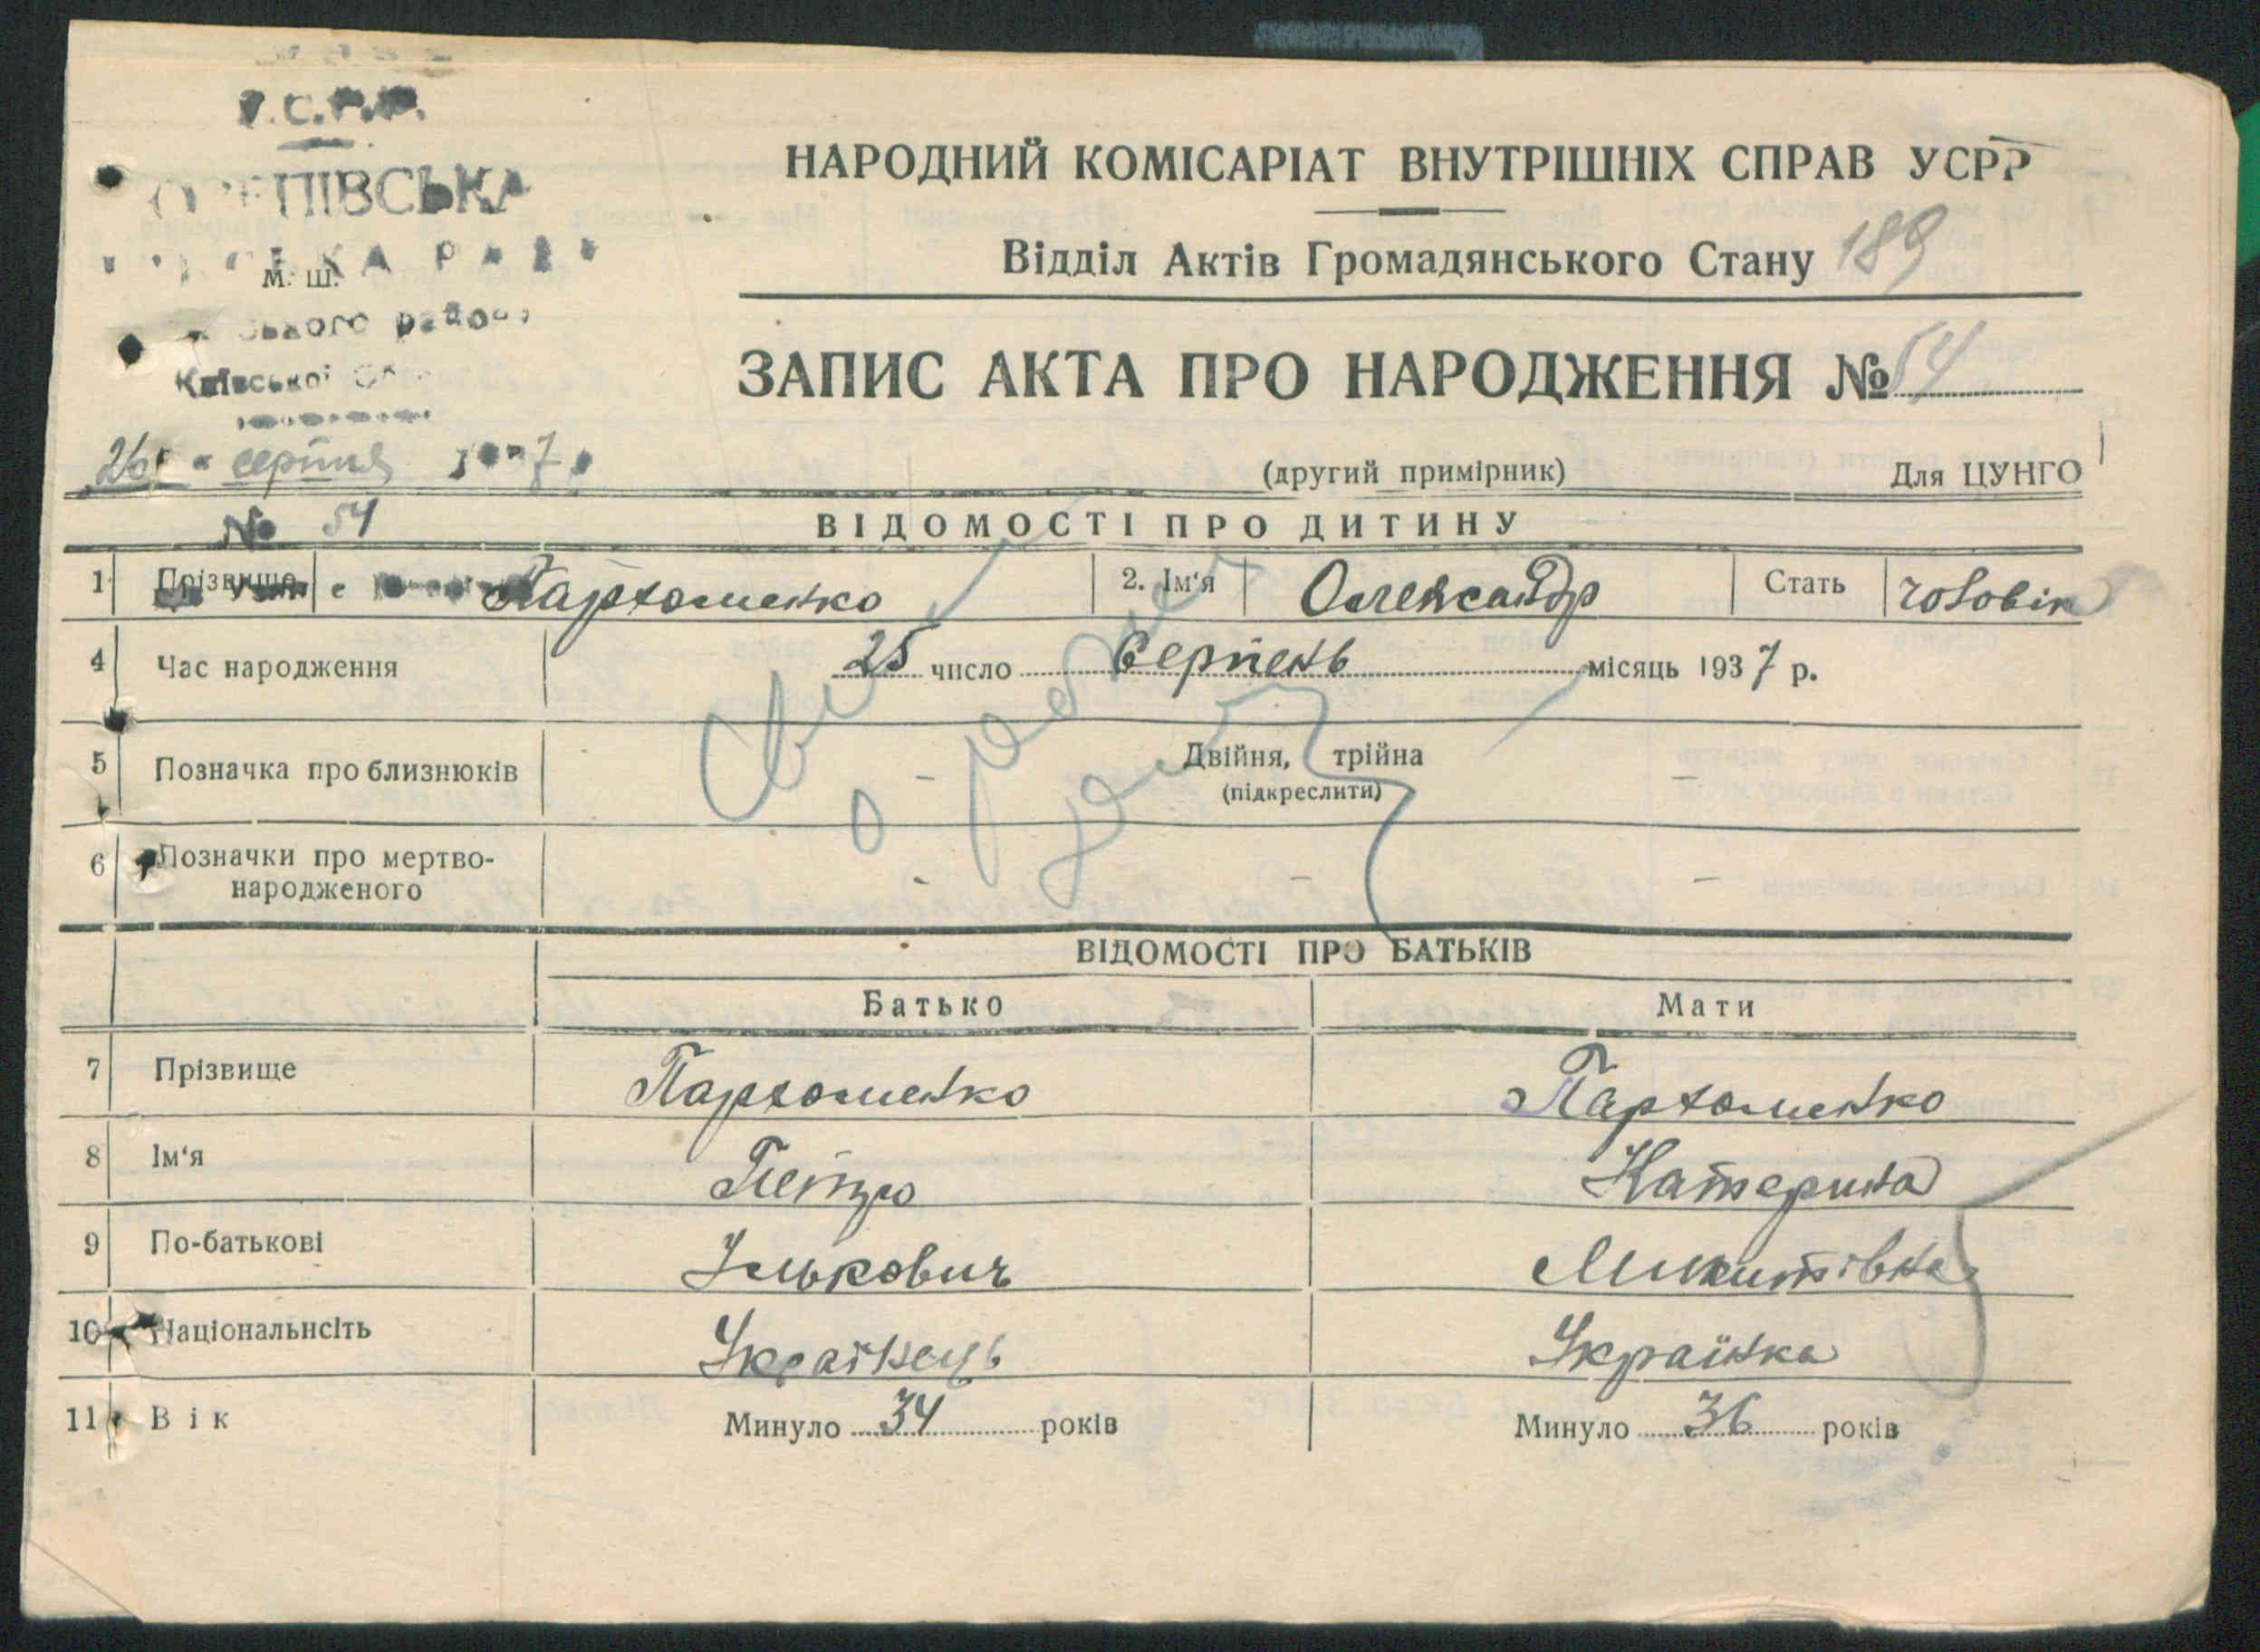 У.С.Р.Р.
НАРОДНИЙ КОМІСАРІАТ ВНУТРІШНІХ СПРАВ УСРР
М. Ш.
Відділ Актів Громадянського Стану 189
Київської
ЗАПИС АКТА ПРО НАРОДЖЕННЯ № 54
26 серпня 1937
(другий примірник) Для ЦУНГО
№ 54
ВІДОМОСТІ ПРО ДИТИНУ
1 Прізвище Пархоменко 2. Ім'я Олександр Стать чоловік
4 Час народження 25 число Серпень місяць 1937 р.
5 Позначка про близнюків - Двійня, трійна -
(підкреслити)
6 Позначки про мертво-
народженого - - -
ВІДОМОСТІ ПРО БАТЬКІВ
Батько Мати
7 Прізвище Пархоменко Пархоменко
8 Ім'я Петро Катерина
9 По-батькові Ількович Микитівна
10 Національнсіть Українець Українка
11 Вік Минуло 34 років Минуло 36 років